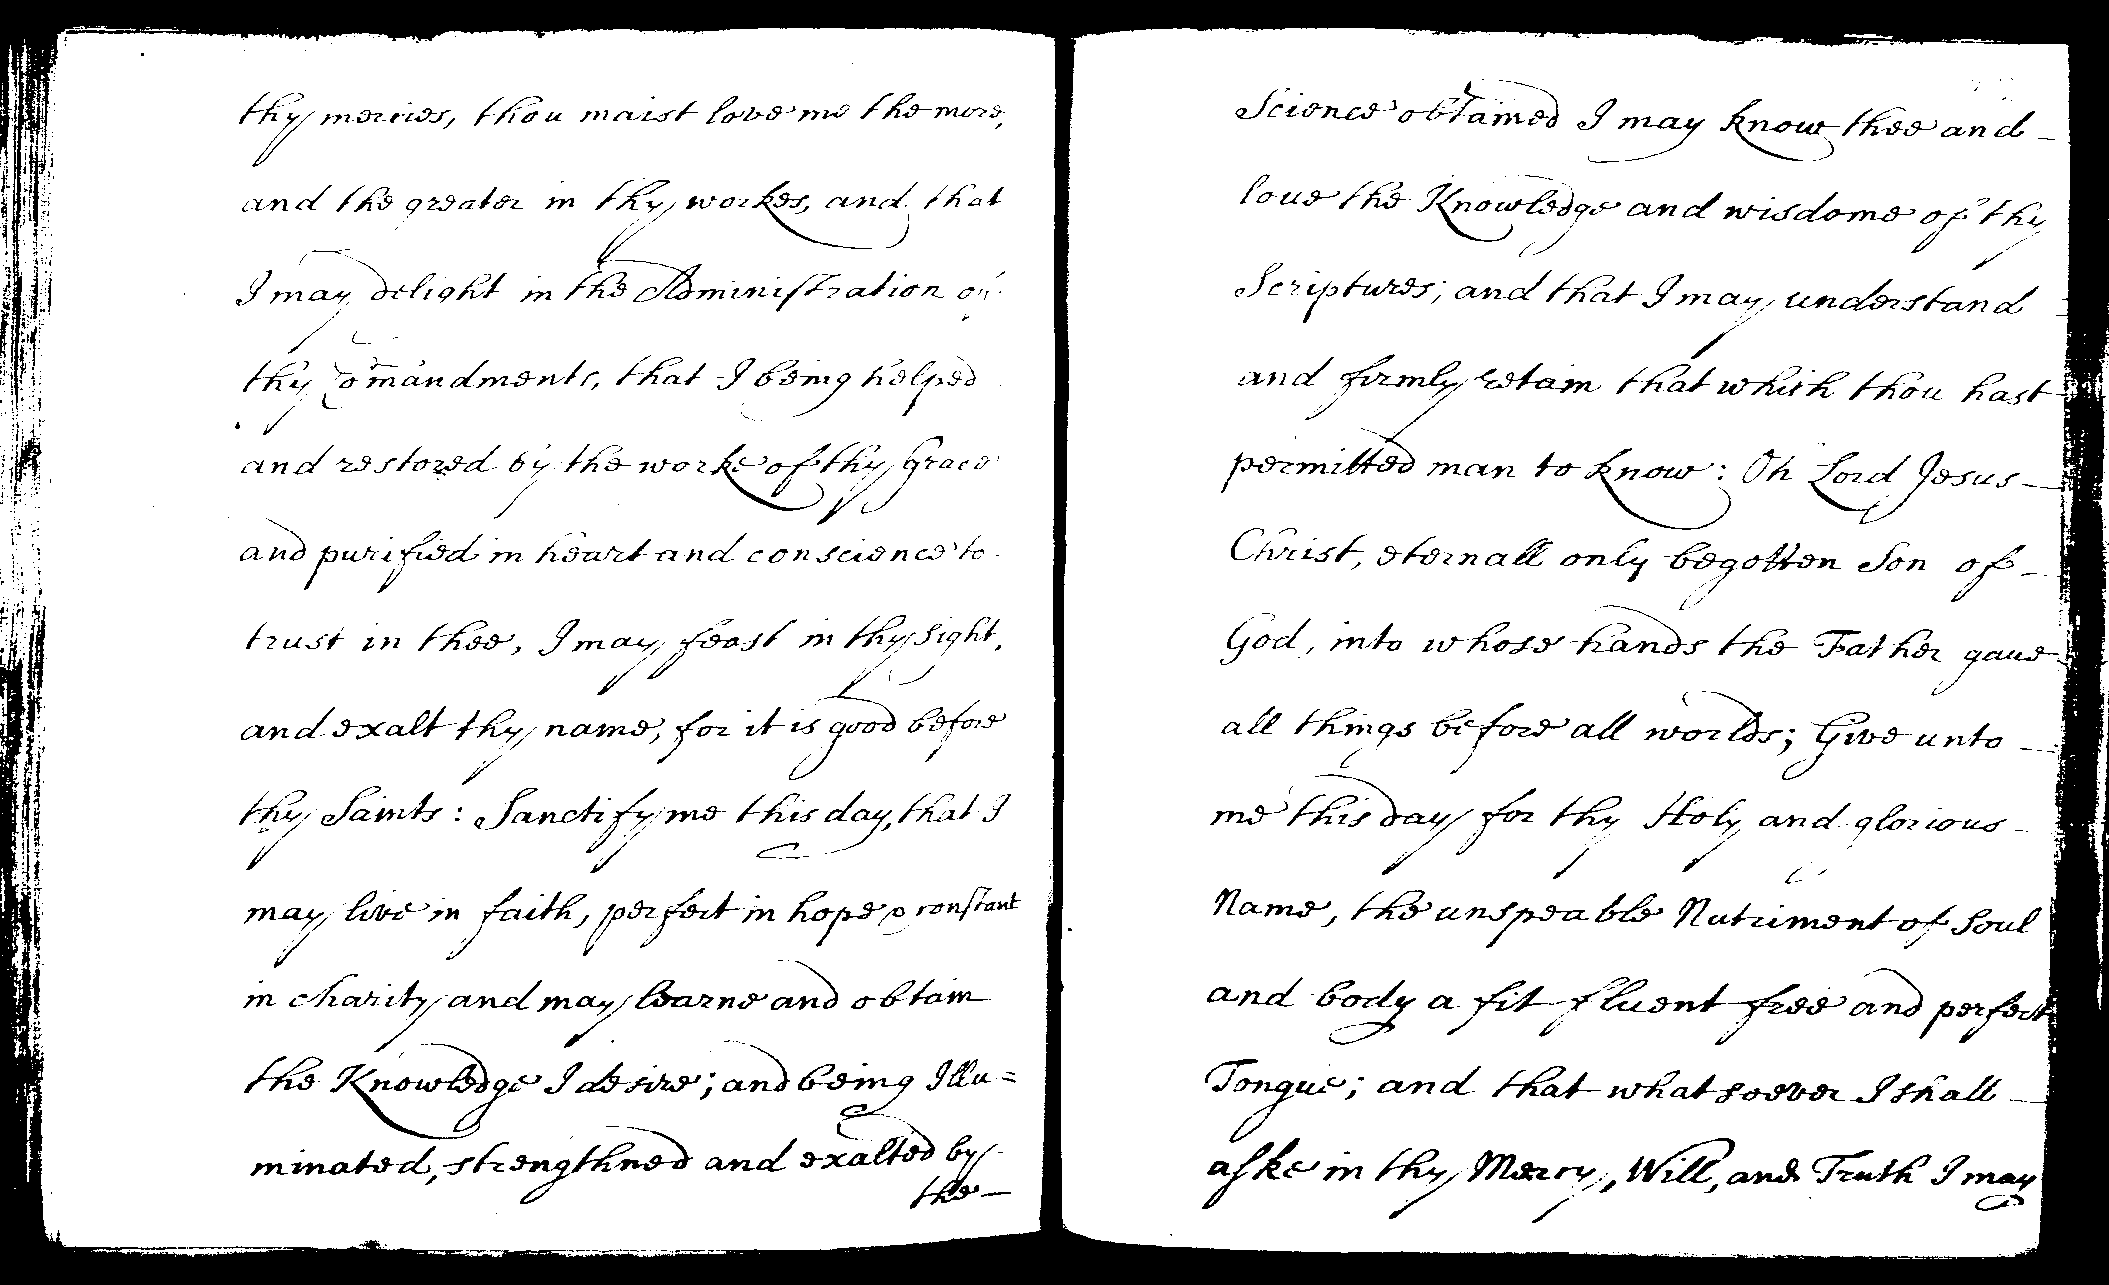 thy mercies, thou maist love me the more,
and the greater in thy workes, and that
I may delight in the Adminiſtration of
thy Com̄andments, that I being helped
and restored by the worke of thy Grace
and purified in heart and conscience to
trust in thee, I may feast in thy sight,
and exalt thy name, for it is good before
thy Saints: Sanctify me this day, that I
may live in faith, perfect in hope & conſtant
in charity and may learne and obtain
the Knowledge I desire; and being Illu=
minated, strengthned and exalted by
the —
Science obtained I may know thee and —
loue the Knowledge and wisdome of thy
Scriptures; and that I may understand
and firmly retain that which thou hast
permitted man to know: Oh Lord Jesus —
Christ, eternall only begotten Son of —
God, into whose hands the Father gaue
all things before all worlds; Give unto —
me this day for thy Holy and glorious —
Name, the unspeable Nutriment of Soul
and body a fit fluent free and perfect
Tongue; and that whatsoever I shall —
aſke in thy Mercy, Will, and Truth I may